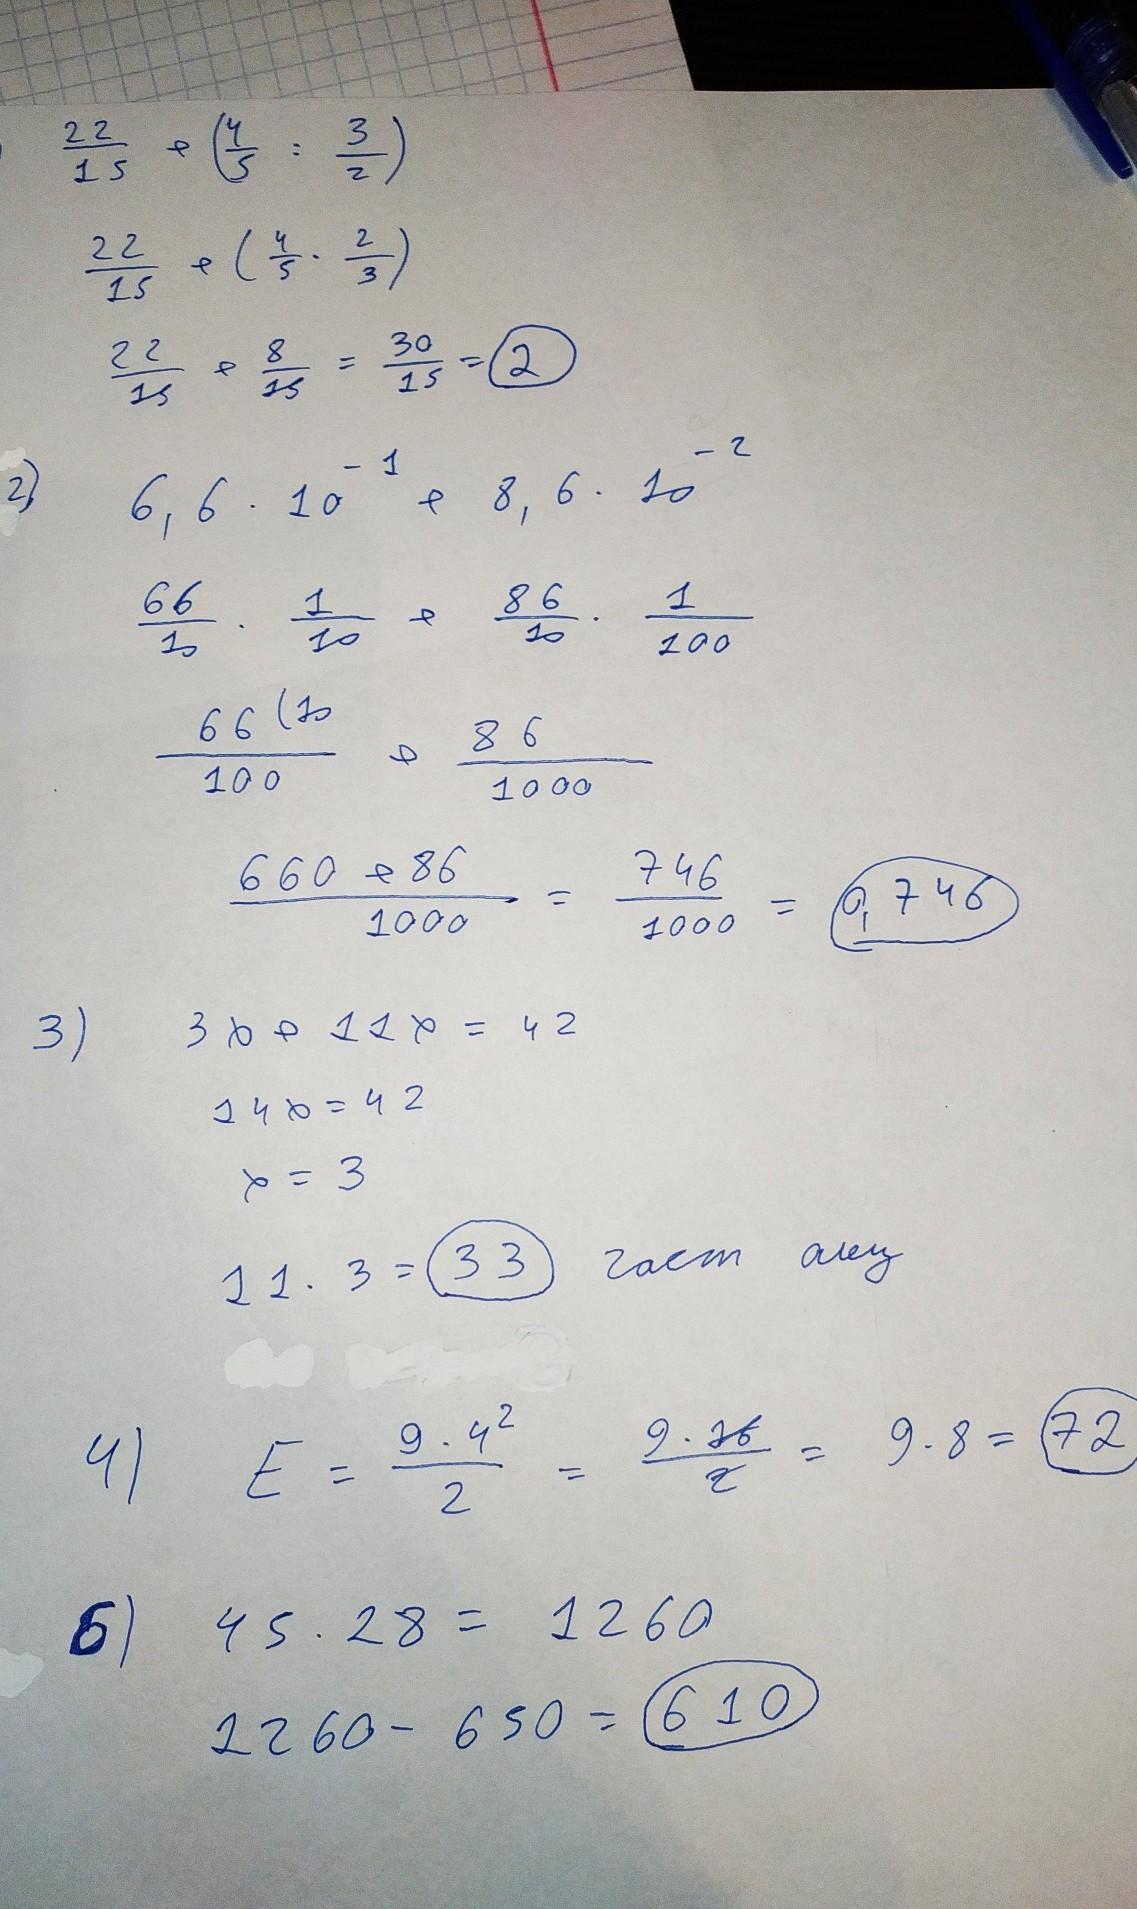 22/15 + (4/5 : 3/2)
22/15 + (4/5 · 2/3)
22/15 + 8/15 = 30/15 = 2
2) 6,6 · 10^-1 + 8,6 · 10^-2
66/10 · 1/10 + 86/10 · 1/100
66(10/100 + 86/1000
660 + 86/1000 = 746/1000 = 0,746
3) 3x + 11x = 42
14x = 42
x = 3
11 · 3 = 33 част акц
4) E = 9 · 4^2/2 = 9 · 16/2 = 9 · 8 = 72
6) 45 · 28 = 1260
1260 - 650 = 610